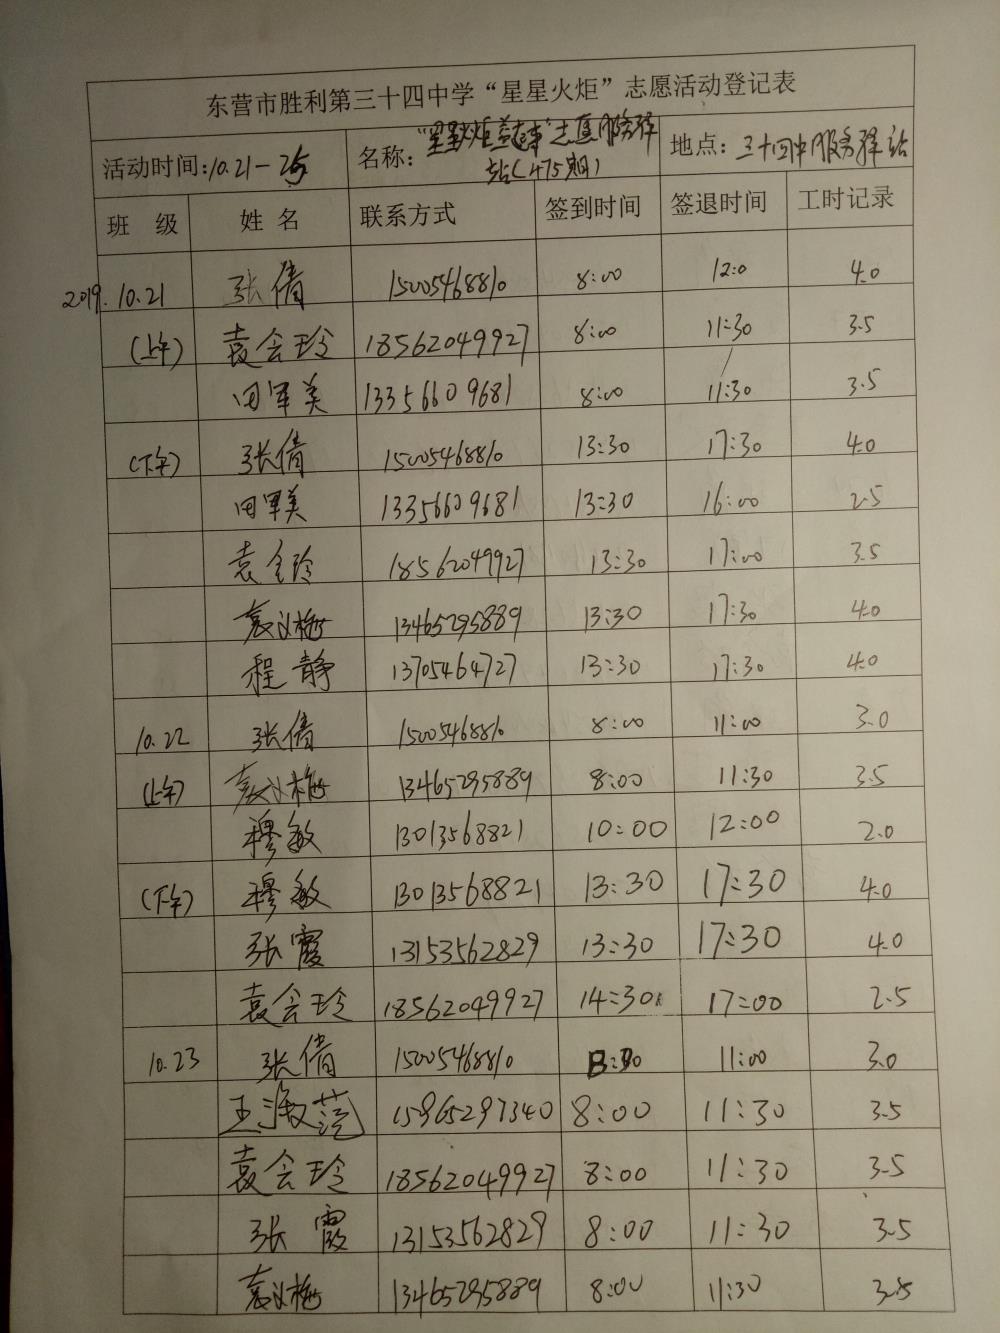 东营市胜利第三十四中学“星星火炬”志愿活动登记表
活动时间:10.21-25 名称:“星星火炬益起来”志愿服务驿站(475期) 地点:三十四中服务驿站
班 级 姓 名 联系方式 签到时间 签退时间 工时记录
2019.10.21 张倩 15005468810 8:00 12:0 4.0
(上午) 袁会玲 18562049927 8:00 11:30 3.5
田军美 13356609681 8:00 11:30 3.5
(下午) 张倩 15005468810 13:30 17:30 4.0
田军美 13356609681 13:30 16:00 2.5
袁会玲 18562049927 13:30 17:00 3.5
袁义梅 13465295889 13:30 17:30 4.0
程静 13705464727 13:30 17:30 4.0
10.22 张倩 15005468810 8:00 11:00 3.0
(上午) 袁义梅 13465295889 8:00 11:30 3.5
穆敏 13013568821 10:00 12:00 2.0
(下午) 穆敏 13013568821 13:30 17:30 4.0
张霞 13153562829 13:30 17:30 4.0
袁会玲 18562049927 14:30 17:00 2.5
10.23 张倩 15005468810 11:00 3.0
王淑范 15965297340 8:00 11:30 3.5
袁会玲 18562049927 8:00 11:30 3.5
张霞 13153562829 8:00 11:30 3.5
袁义梅 13465295889 8:00 11:30 3.5